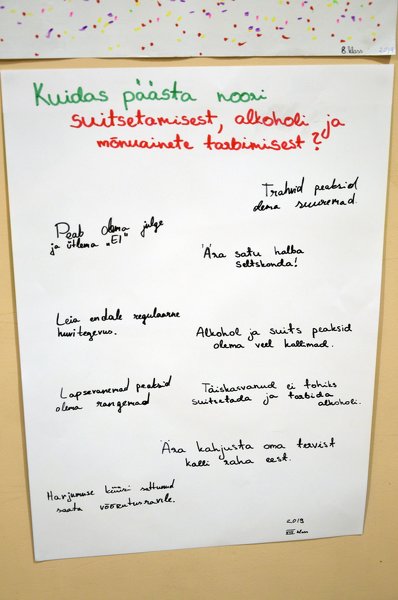 8. klass 2019
Kuidas päästa noori
suitsetamisest, alkoholi ja
mõnuainete tarbimisest?
Trahvid peaksid
olema suuremad.
Peab olema julge
ja ütlema „EI"
Ära satu halba
seltskonda!
Leia endale regulaarne
huvitegevus.
Alkohol ja suits peaksid
olema veel kallimad.
Lapsevanemad peaksid
olema rangemad
Täiskasvanud ei tohiks
suitsetada ja tarbida
alkoholi.
Ära kahjusta oma tervist
kalli raha eest.
Harjumuse küüsi sattunud
saata võõrutusravile.
2019
VIII klass